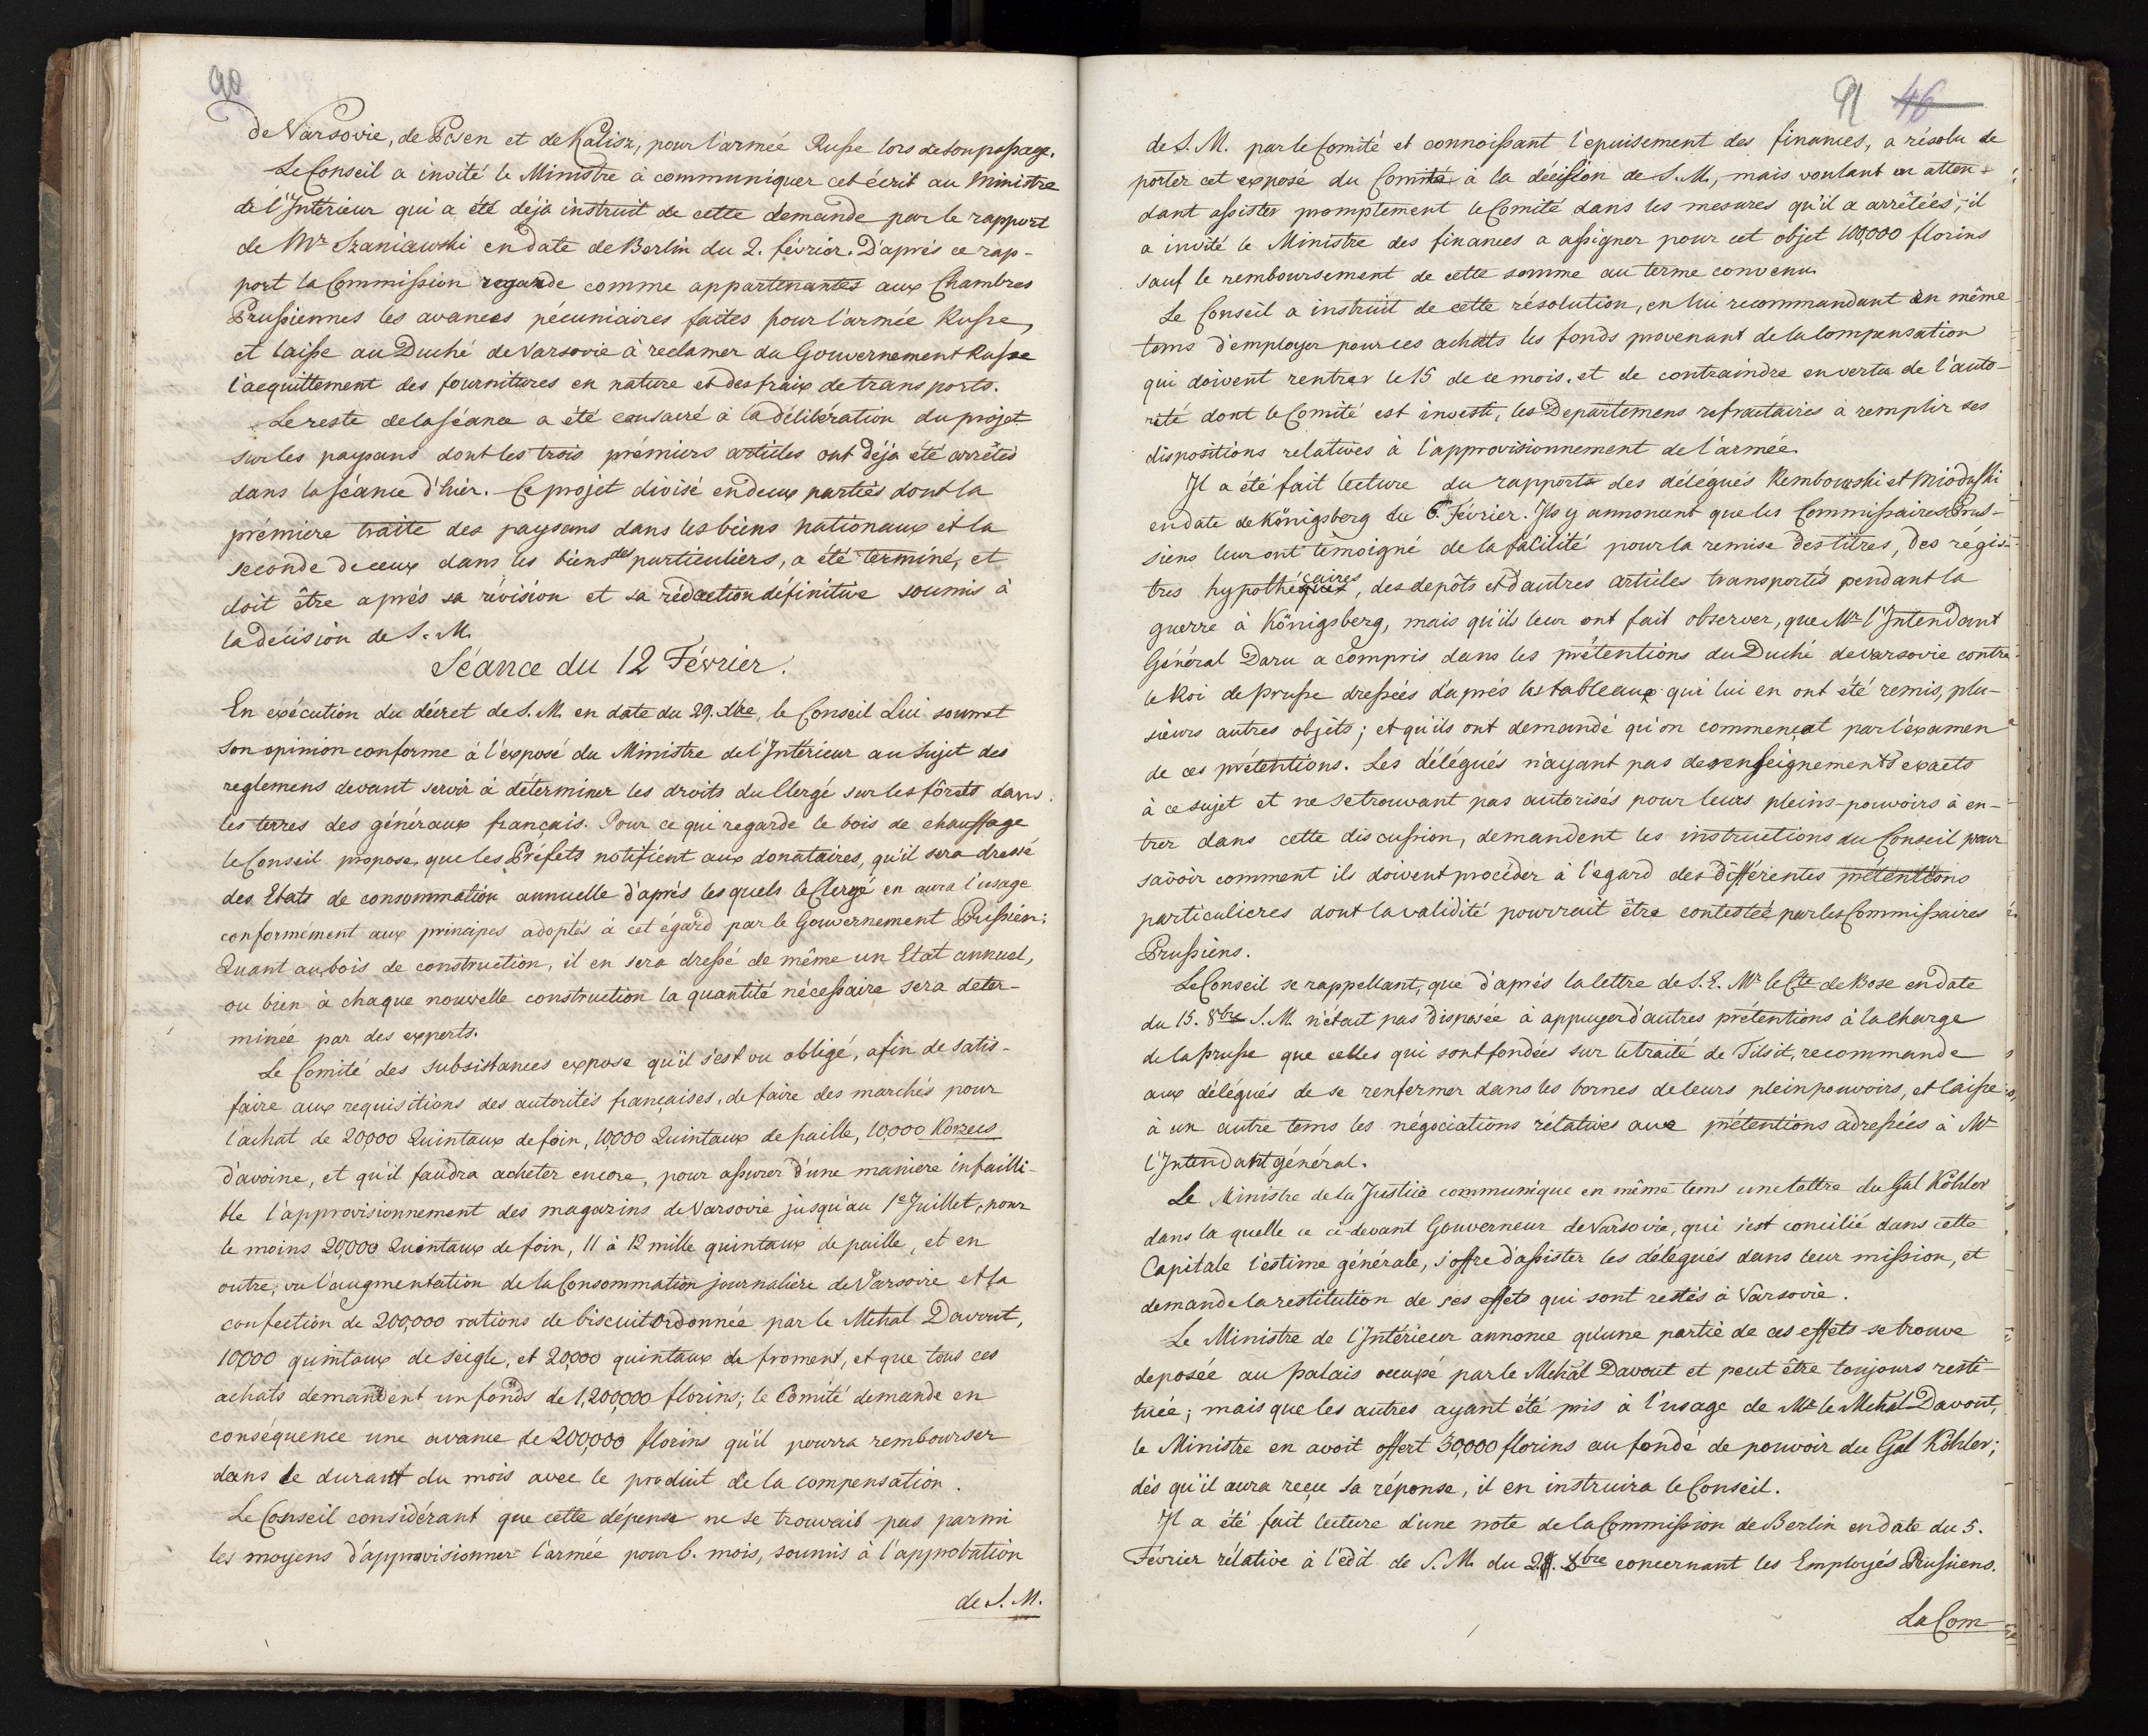 90
de Varsovie, de Posen et de Kalisz, pour l'armée Russe lors de son passage.
Le Conseil a invité le Ministre à communiquer cet écrit au Ministre
de l'Intérieur qui a été déjà instruit de cette demande par le rapport
de Mr Szaniawski en date de Berlin du 2. février. D'aprés ce rap-
port la Commission regarde comme appartenantes aux Chambres
Prussiennes les avances pécuniaires faites pour l'armée Russe,
et laisse au Duché de Varsovie à reclamer du Gouvernement Russe
l'acquittement des fournitures en nature et des fraix de transports.
Le reste de la séance a été consacré à la délibération du projet
sur les paysans dont les trois prémiers articles ont déjà été arrêtés
dans la séance d'hier. Ce projet divisé en deux parties dont la
prémiere traite des paysans dans les biens nationaux et la
seconde de ceux dans les biens des particuliers, a été terminé, et
doit être aprés sa révision et sa rédaction définitive soumis à
la décision de S. M.
Séance du 12 Février.
En exécution du décret de S. M. en date du 29. Xbre, le Conseil Lui soumet
son opinion conforme à l'exposé du Ministre de l'Intérieur au sujet des
reglemens devant servir à déterminer les droits du Clergé sur les fôrets dans
les terres des généraux français. Pour ce qui regarde le bois de chauffage
le Conseil propose, que les Préfets notifient aux donataires, qu'il sera dressé
des Etats de consommation annuelle d'aprés lesquels le Clergé en aura l'usage
conformement aux principes adoptés à cet égard par le Gouvernement Prussien.
Quant au bois de construction, il en sera dressé de même un Etat annuel,
ou bien à chaque nouvelle construction la quantité nécessaire sera deter-
minée par des experts.
Le Comité des subsistances expose qu'il s'est vu obligé, afin de satis-
faire aux requisitions des autorités françaises, de faire des marchés pour
l'achat de 20,000 Quintaux de foin, 10,000 Quintaux de paille, 10,000 Korzecs
d'avoine, et qu'il faudra acheter encore, pour assurer d'une maniere infailli-
ble l'approvisionnement des magazins de Varsovie jusqu'au 1e Juillet, pour
le moins 20,000 Quintaux de foin, 11 à 12 mille quintaux de paille, et en
outre, vu l'augmentation de la Consommation journalière de Varsovie et la
confection de 200,000 rations de biscuit ordonnée par le Mchal Davout,
10,000 quintaux de seigle, et 20,000 quintaux de froment, et que tous ces
achats demandent un fonds de 1,200,000 florins; le Comité demande en
conséquence une avance de 200,000 florins qu'il pourra rembourser
dans le durant du mois avec le produit de la compensation.
Le Conseil considérant que cette dépense ne se trouvait pas parmi
les moyens d'approvisionner l'armée pour 6. mois, soumis à l'approbation
de S. M.
91 46
de S. M. par le Comité et connoissant l'epuisement des finances, a résolu de
porter cet exposé du Comité à la décision de S. M., mais voulant en atten-
dant assister promptement le Comité dans les mesures qu'il a arrêtées, il
a invité le Ministre des finances a assigner pour cet objet 100,000 florins
sauf le remboursement de cette somme au terme convenu.
Le Conseil a instruit de cette résolution, en lui recommandant en même
tems d'employer pour ces achats les fonds provenant de la Compensation
qui doivent rentrer le 15 de ce mois, et de contraindre en vertu de l'auto-
rité dont le Comité est investi, les Departemens refractaires à remplir ses
dispositions relatives à l'approvisionnement de l'armée.
Il a été fait lecture du rapport des délégués Rembowski et Mioduski
en date de Königsberg du 6. Février. Ils y annoncent que les Commissaires Prus-
siens leur ont témoigné de la facilité pour la remise des titres, des régis-
tres hypothécaires, des depôts et d'autres articles transportés pendant la
guerre à Königsberg, mais qu'ils leur ont fait observer, que Mr l'Intendant
Général Daru a compris dans les prétentions du Duché de Varsovie contre
le Roi de Prusse dressées d'aprés les tableaux qui lui en ont été remis, plu-
sieurs autres objets; et qu'ils ont demandé qu'on commençat par l'examen
de ces prétentions. Les délégués n'ayant pas de renseignements exacts
à ce sujet et ne se trouvant pas autorisés pour leurs pleins-pouvoirs à en-
trer dans cette discussion, demandent les instructions du Conseil pour
savoir comment ils doivent procéder à l'egard des différentes prétentions
particulieres dont la validité pourrait être contestée par les Commissaires
Prussiens.
Le Conseil se rappellant, que d'aprés la lettre de S. E. Mr le Cte de Bose en date
du 15. 8bre S. M. n'étant pas disposée à appuyer d'autres prétentions à la charge
de la Prusse que celles qui sont fondées sur le traité de Tilsit, recommande
aux délégués de se renfermer dans les bornes de leurs pleinpouvoirs, et laisse
à un autre tems les négociations rélatives aux prétentions adressées à Mr
l'Intendant général.
Le Ministre de la Justice communique en même tems une lettre du Gal Köhler
dans la quelle ce ci-devant Gouverneur de Varsovie, qui s'est concilié dans cette
Capitale l'estime générale, s'offre d'assister les délégués dans leur mission, et
demande la restitution de ses effets qui sont restés à Varsovie.
Le Ministre de l'Intérieur annonce qu'une partie de ces effets se trouve
deposée au palais occupé par le Mchal Davout et peut être toujours resti-
tuée; mais que les autres ayant été pris à l'usage de Mr le Mchal Davout,
le Ministre en avoit offert 30,000 florins au fondé de pouvoir du Gal Köhler;
dès qu'il aura reçu sa réponse, il en instruira le Conseil.
Il a été fait lecture d'une note de la Commission de Berlin en date du 5.
Février rélative à l'edit de S. M. du 8bre concernant les Employés Prussiens.
La Com-